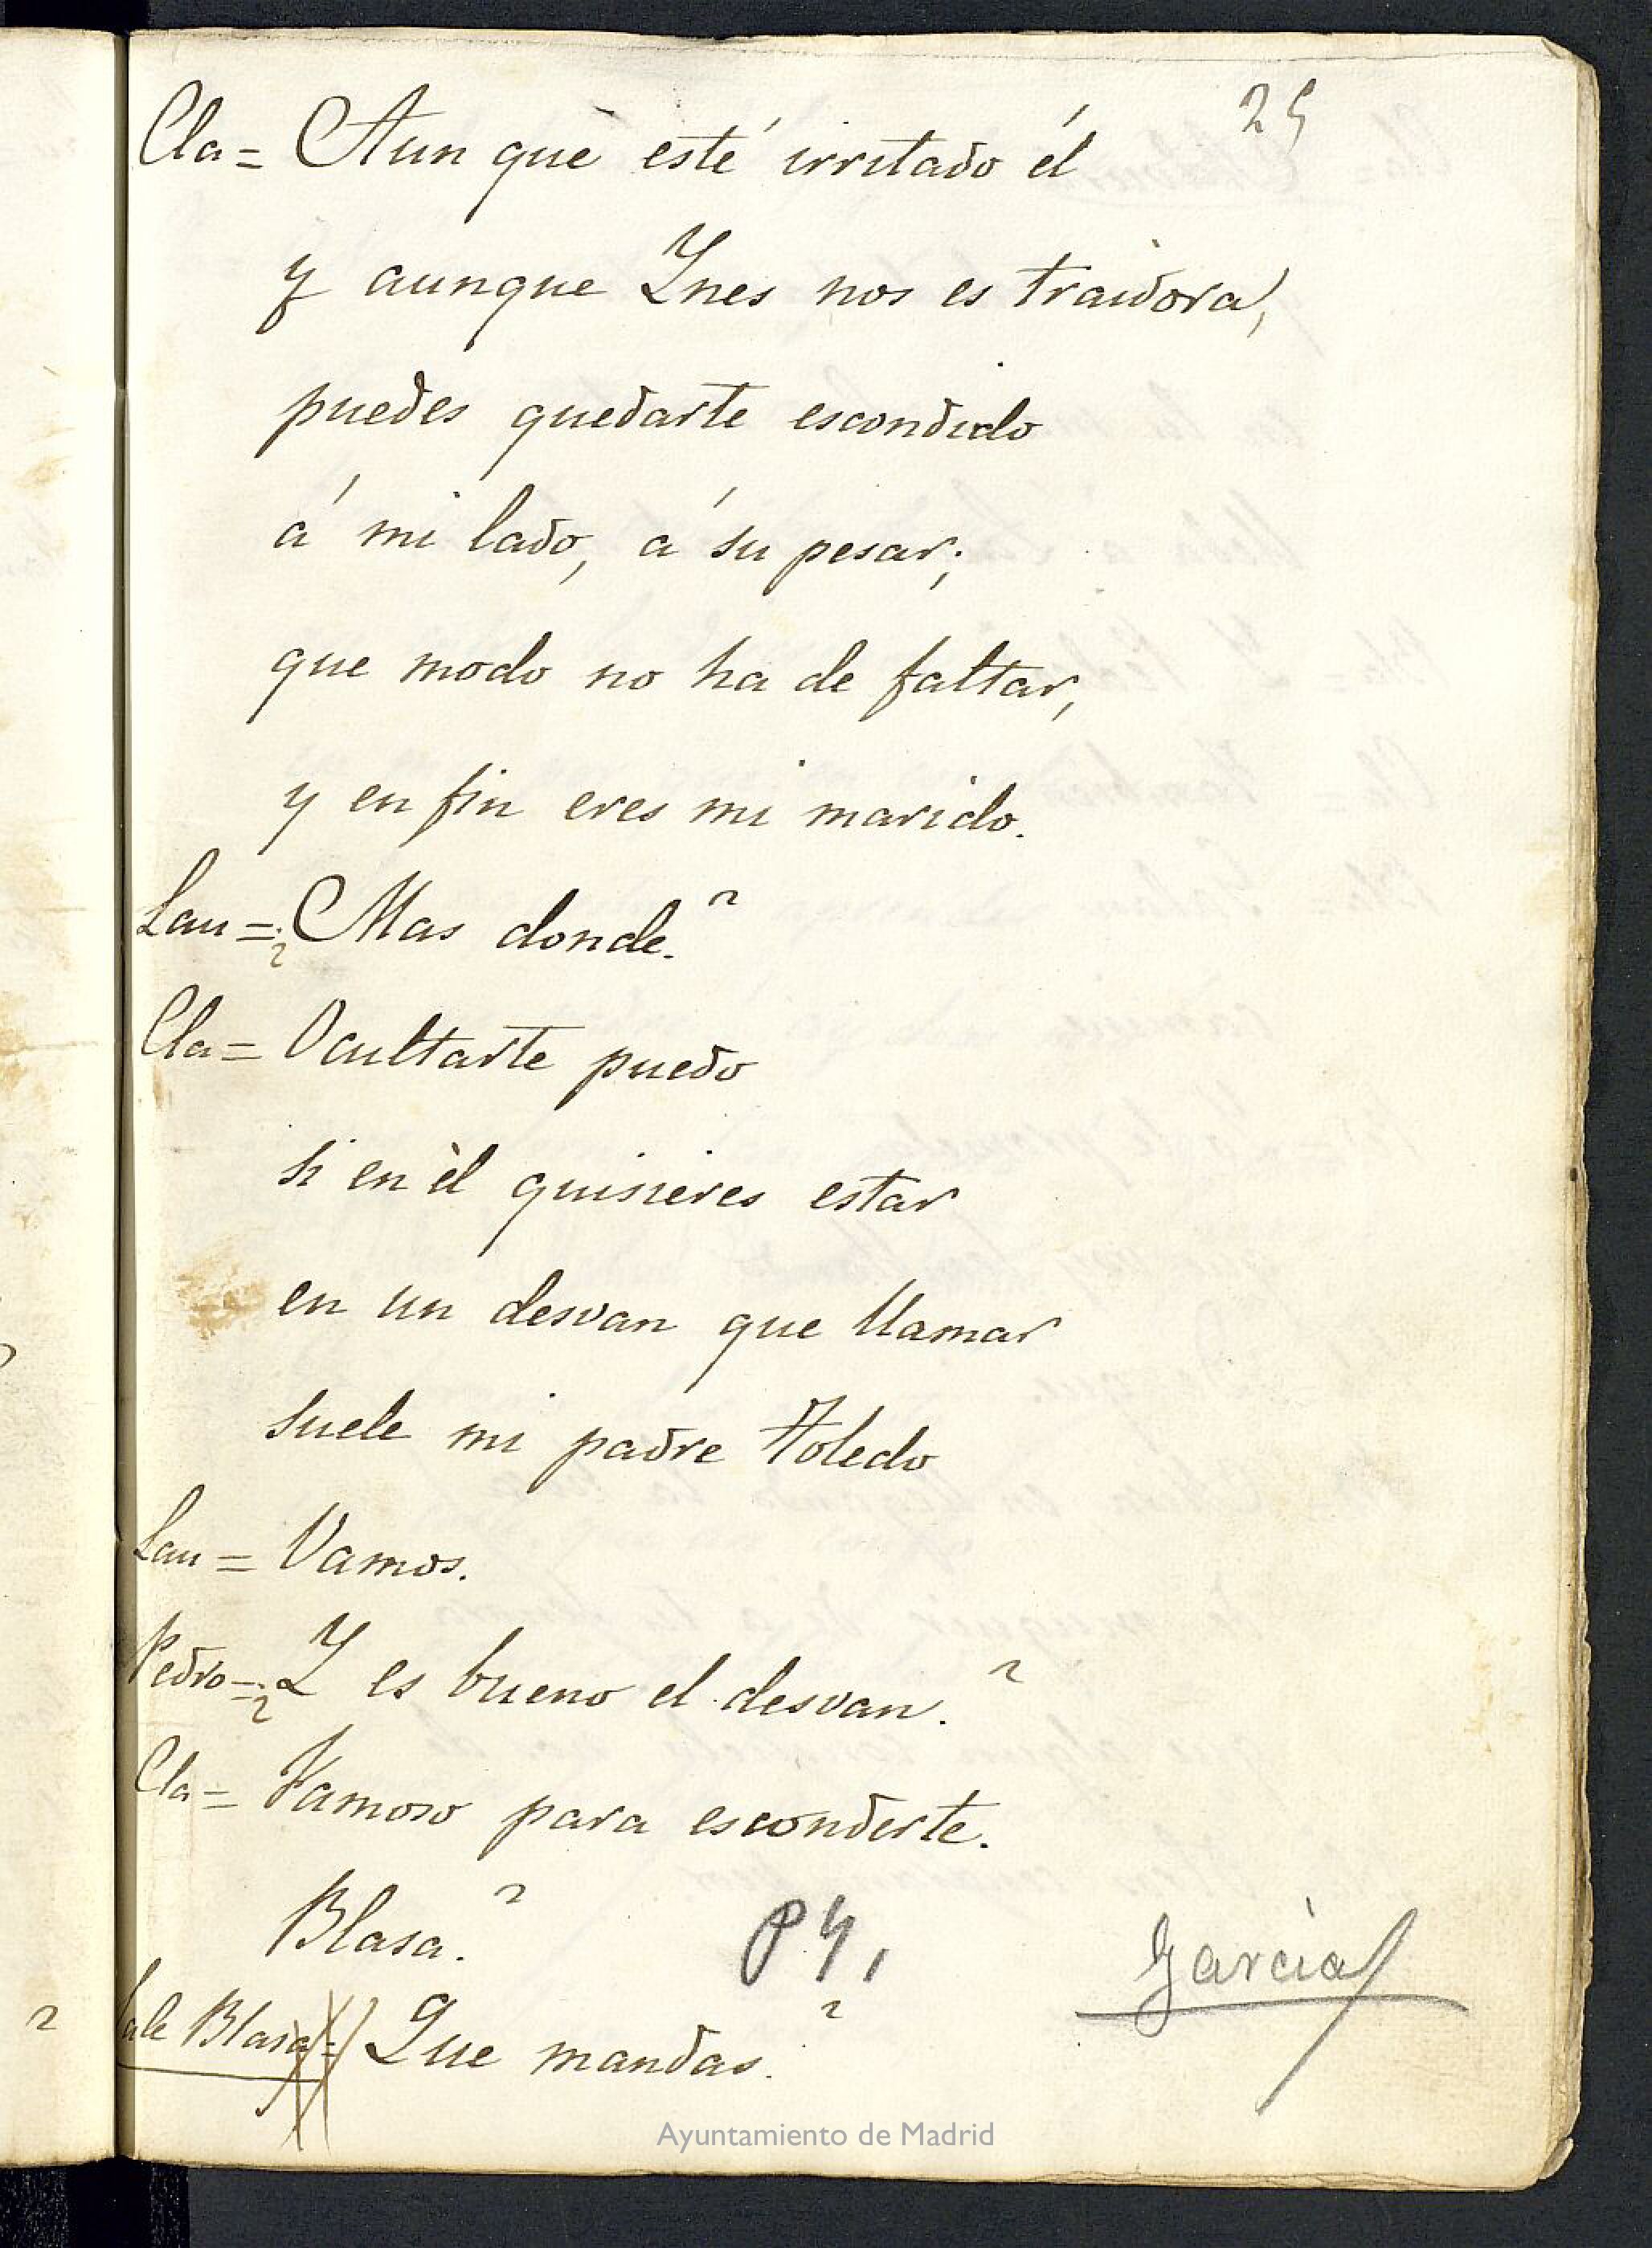 25
Cla= Aun que esté irritado él
y aunque Ynes nos es traidora,
puedes quedarte escondido
á mi lado, á su pesar;
que modo no ha de faltar,
y en fin eres mi marido.
Lau= ¿Mas donde?
Cla= Ocultarte puedo
si en él quisieres estar
en un desvan que llamar
suele mi padre Toledo
Lau= Vamos.
Pedro= ¿Y es bueno el desvan?
Cla= Vamos para esconderte.
Blasa?
Garcia
Sale Blasa= Que mandas?
Ayuntamiento de Madrid